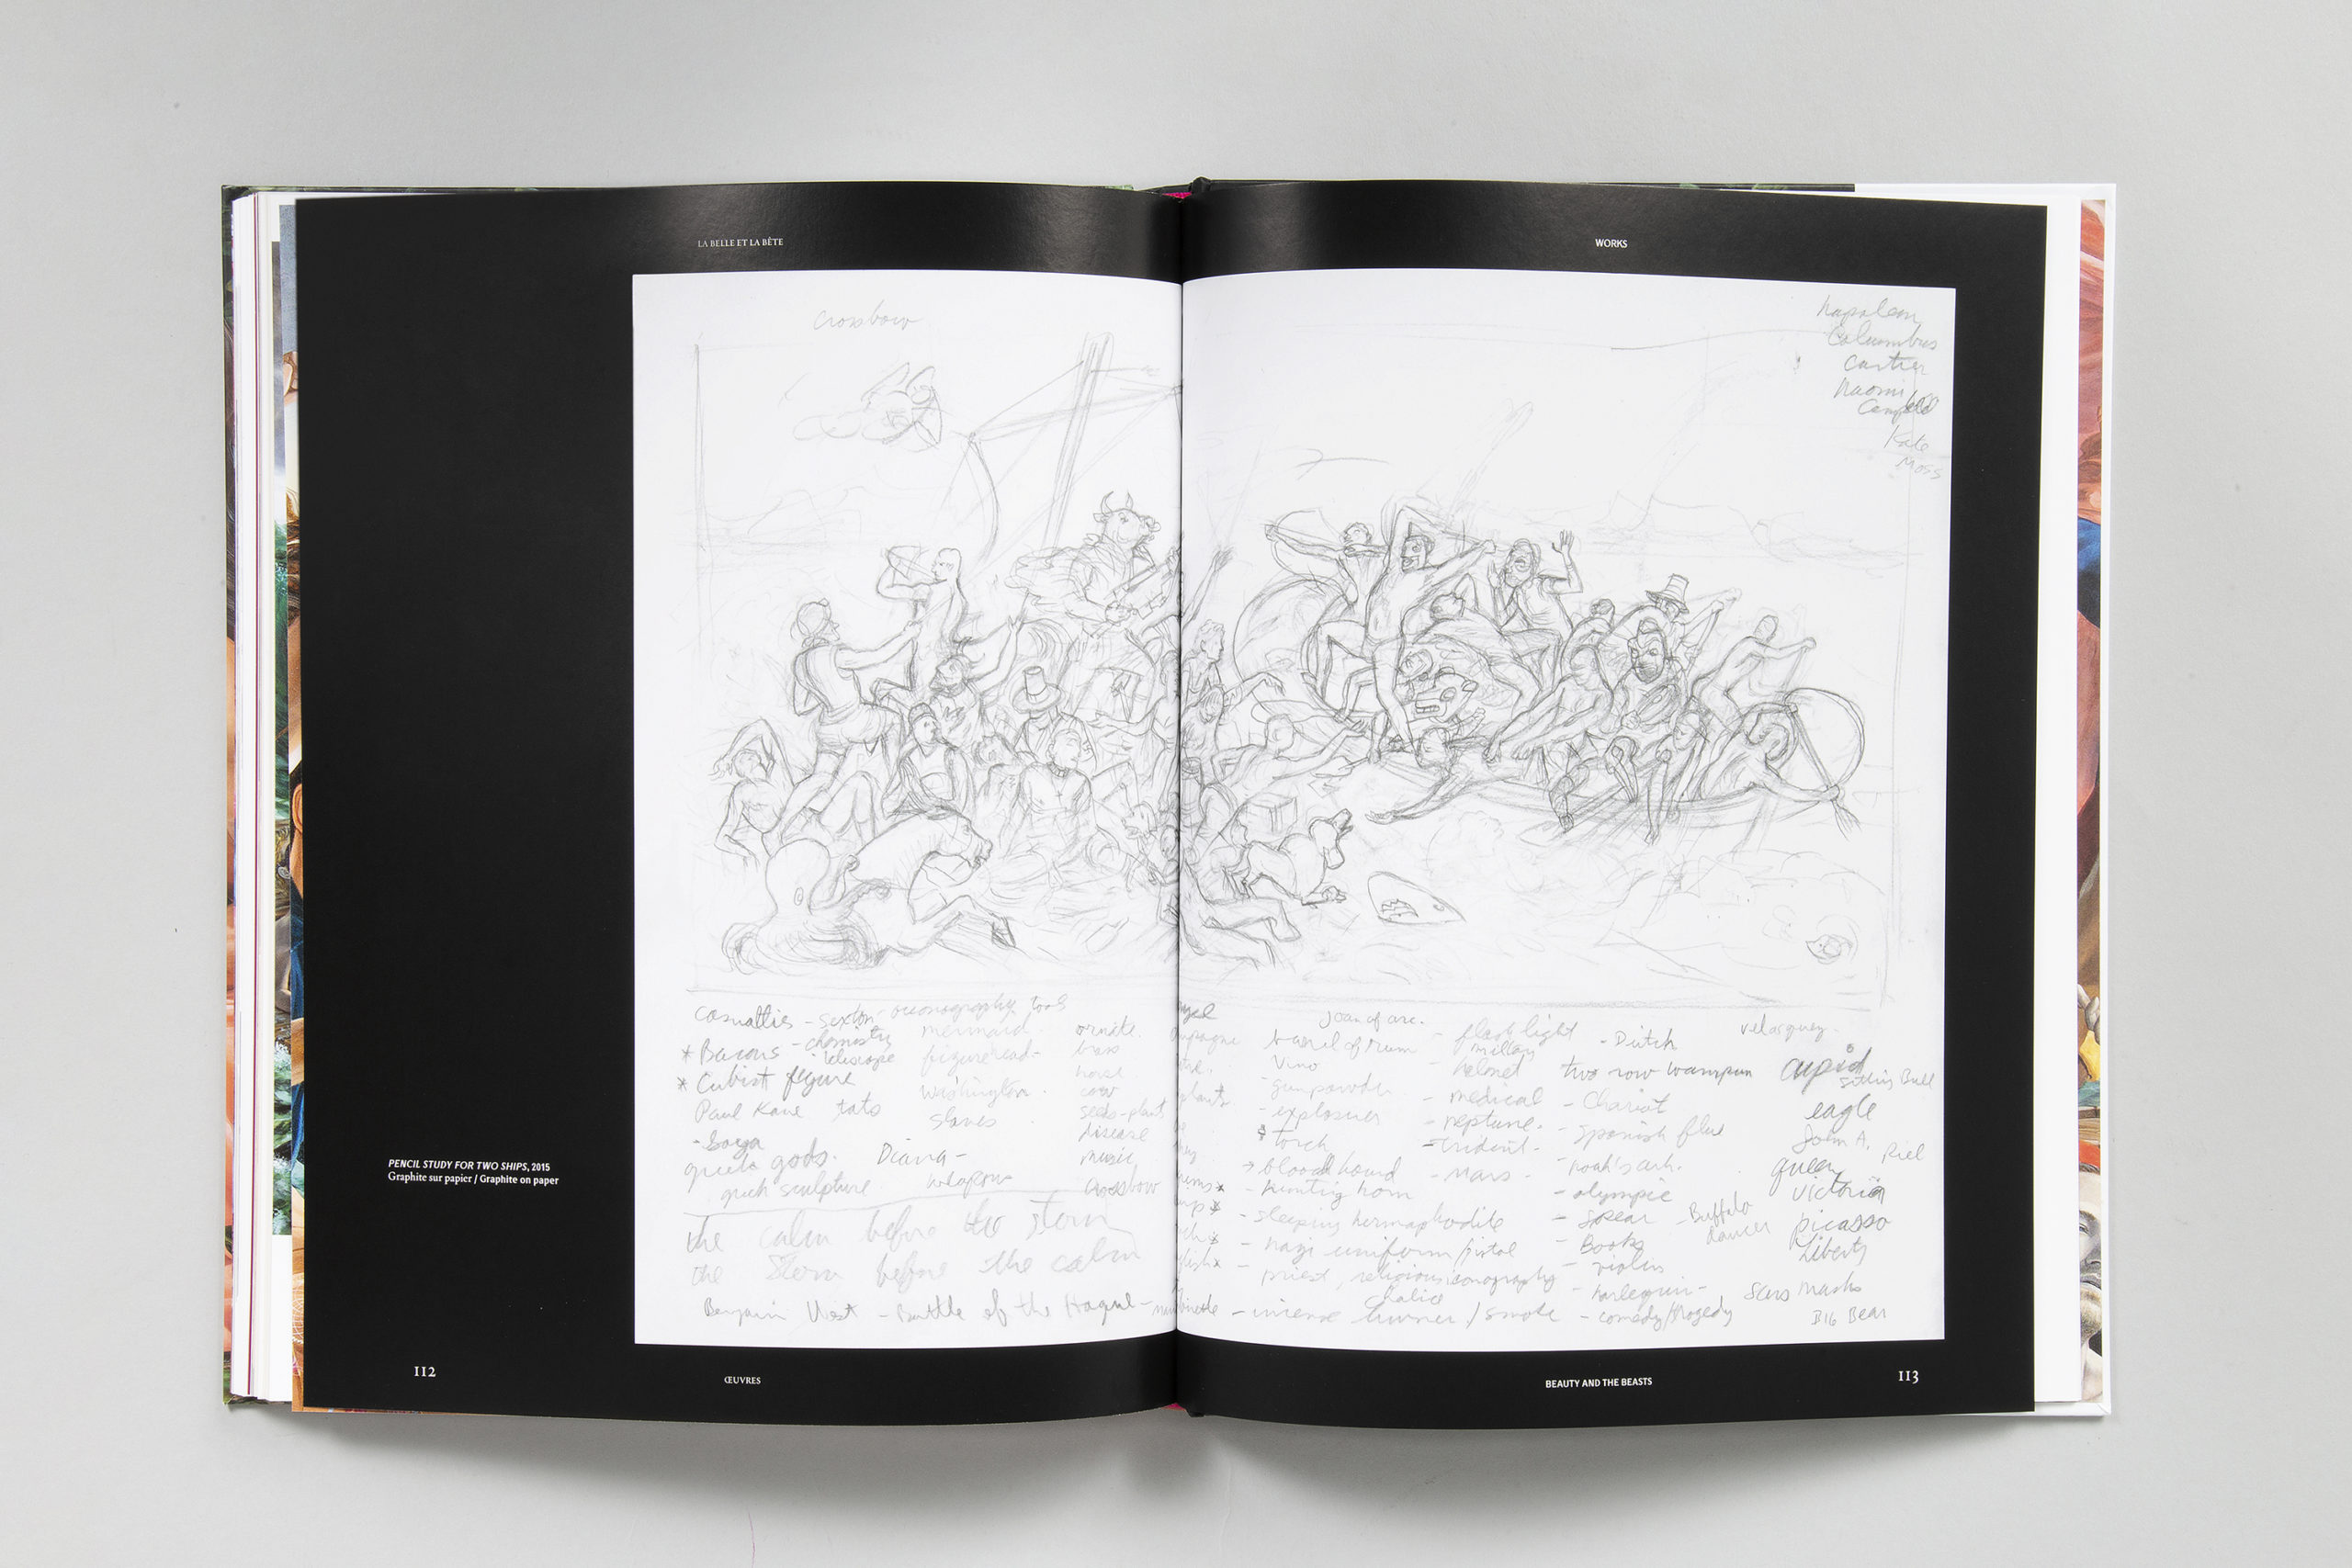 LA BELLE ET LA BÊTE
WORKS
crossbow
Napoleon
Columbus
Cartier
Naomi
Campbell
Kate
Moss
casualties - sexton - oceanography tools
* Bacons - chemistry
telescope
* Cubist figure
Paul Kane tato
- Goya
greek gods.
greek sculpture
mermaid
figurehead -
Washington
slaves
Diana -
weapons
ornate
brass
horse
cow
seeds - plant
disease
music
crossbow
the calm before the storm
the storm before the calm
Benjamin West - Battle of the Hague -
Joan of arc.
barrel of rum
Vino
- gunpowder
- explosives
torch
→ blood hound
- hunting horn
- sleeping hermaphrodite
- nazi uniform/pistol
- priest, religious iconography
chalice
- incense burner / smoke
- flash light
military
- helmet
- medical
- neptune.
- trident.
- Mars -
- Dutch
two row wampum
- Chariot
- Spanish flu
- Noah's ark.
- olympic
- spear
- Books
- violin
- harlequin -
- comedy/tragedy
- Buffalo
dancer
velasquez.
cupid
Sitting Bull
eagle
John A.
Riel
queen
Victoria
picasso
Liberty
scars masks
Big Bear
PENCIL STUDY FOR TWO SHIPS, 2015
Graphite sur papier / Graphite on paper
112
ŒUVRES
BEAUTY AND THE BEASTS
113